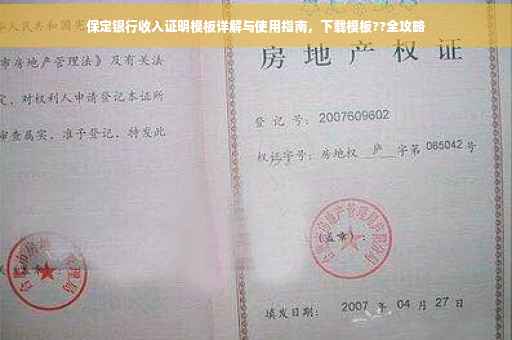 保定银行收入证明模板详解与使用指南，下载模板??全攻略
人民共和国宪
市房地产管理法》及有关法
定，对权利人申请登记本证所
审查属实，准予登记，特发此
房地产权
登记号：2007609602
权证字号：房地权 庐 字第 085042 号
(盖章)：
填发日期： 2007 年 04 月 27 日